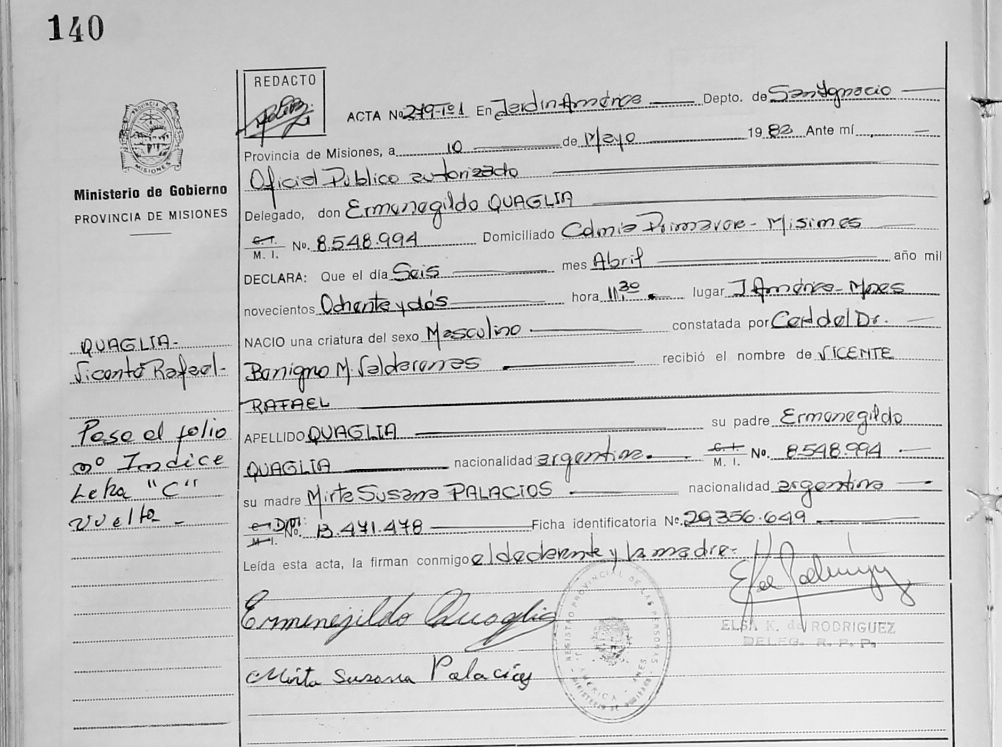 140
REDACTO
ACTA No 279-Tº1 En Jardín América Depto. de San Ignacio
Provincia de Misiones, a 10 de Mayo 1982 Ante mí
Oficial Público autorizado
Delegado, don Ermenegildo QUAGLIA
C.I. M. I. No. 8.548.994 Domiciliado Colonia Primavera - Misiones
DECLARA: Que el día Seis mes Abril año mil
novecientos Ochenta y dós hora 11,30 lugar J América - Mnes
NACIO una criatura del sexo Masculino constatada por Cert del Dr.
Benigno M Valdarenas recibió el nombre de VICENTE
RAFAEL
APELLIDO QUAGLIA su padre Ermenegildo
QUAGLIA nacionalidad argentina. C.I. M. I. No. 8.548.994
su madre Mirta Susana PALACIOS nacionalidad argentina
C.I. M.I. DNI: No. 13.471.478 Ficha identificatoria No. 29.356.649
Leída esta acta, la firman conmigo el declarante y la madre-
Ermenegildo Quaglia
Mirta Susana Palacios
ELSA K. de RODRIGUEZ
DELEG. R. P. P.
REGISTRO PROVINCIAL DE LAS PERSONAS
PROVINCIA DE MISIONES
Ministerio de Gobierno
PROVINCIA DE MISIONES
QUAGLIA-
Vicente Rafael-
Pasa al folio
nº Indice
Letra "C"
vuelta-